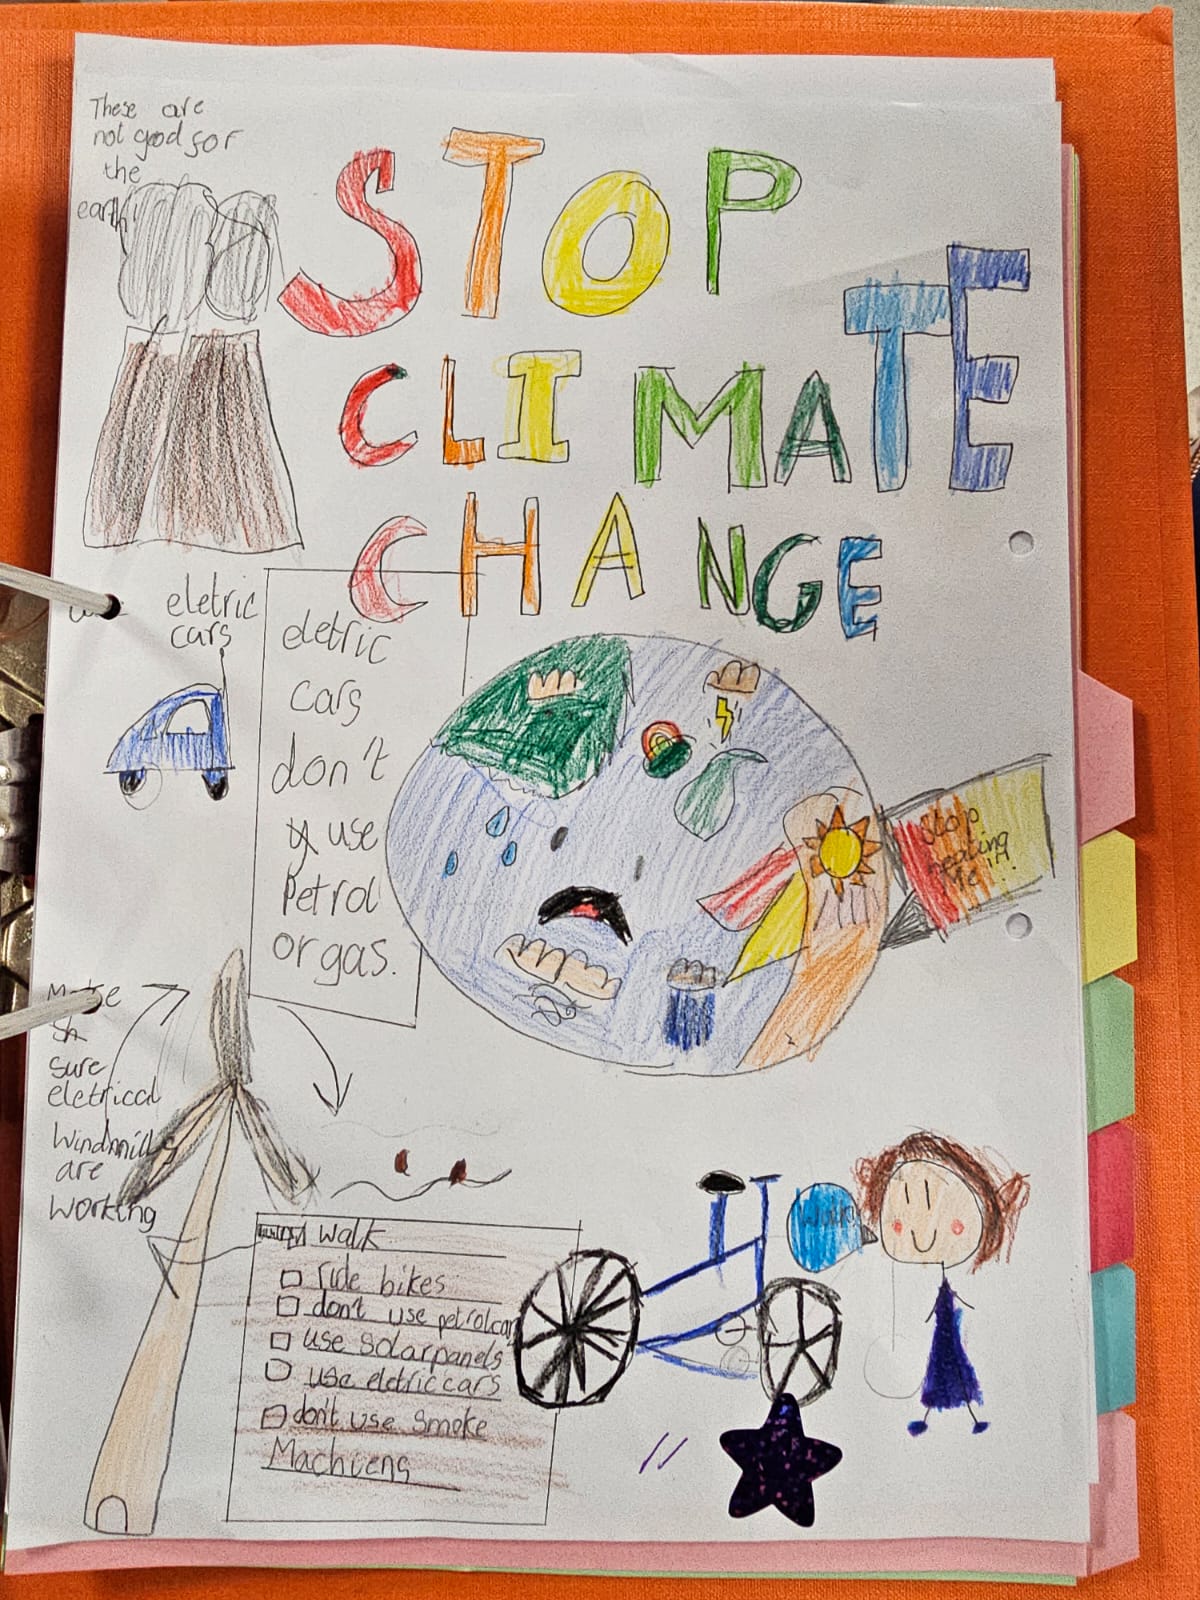 These are
not good for
the
earth!
STOP
CLIMATE
CHANGE
eletric
cars
eletric
cars
don't
use
Petrol
or gas.
Stop
heating
Me!!!
sure
eletrical
Windmills
are
working
walk
ride bikes
don't use petrolcar
use solarpanels
use eletric cars
don't use smoke
Machiens